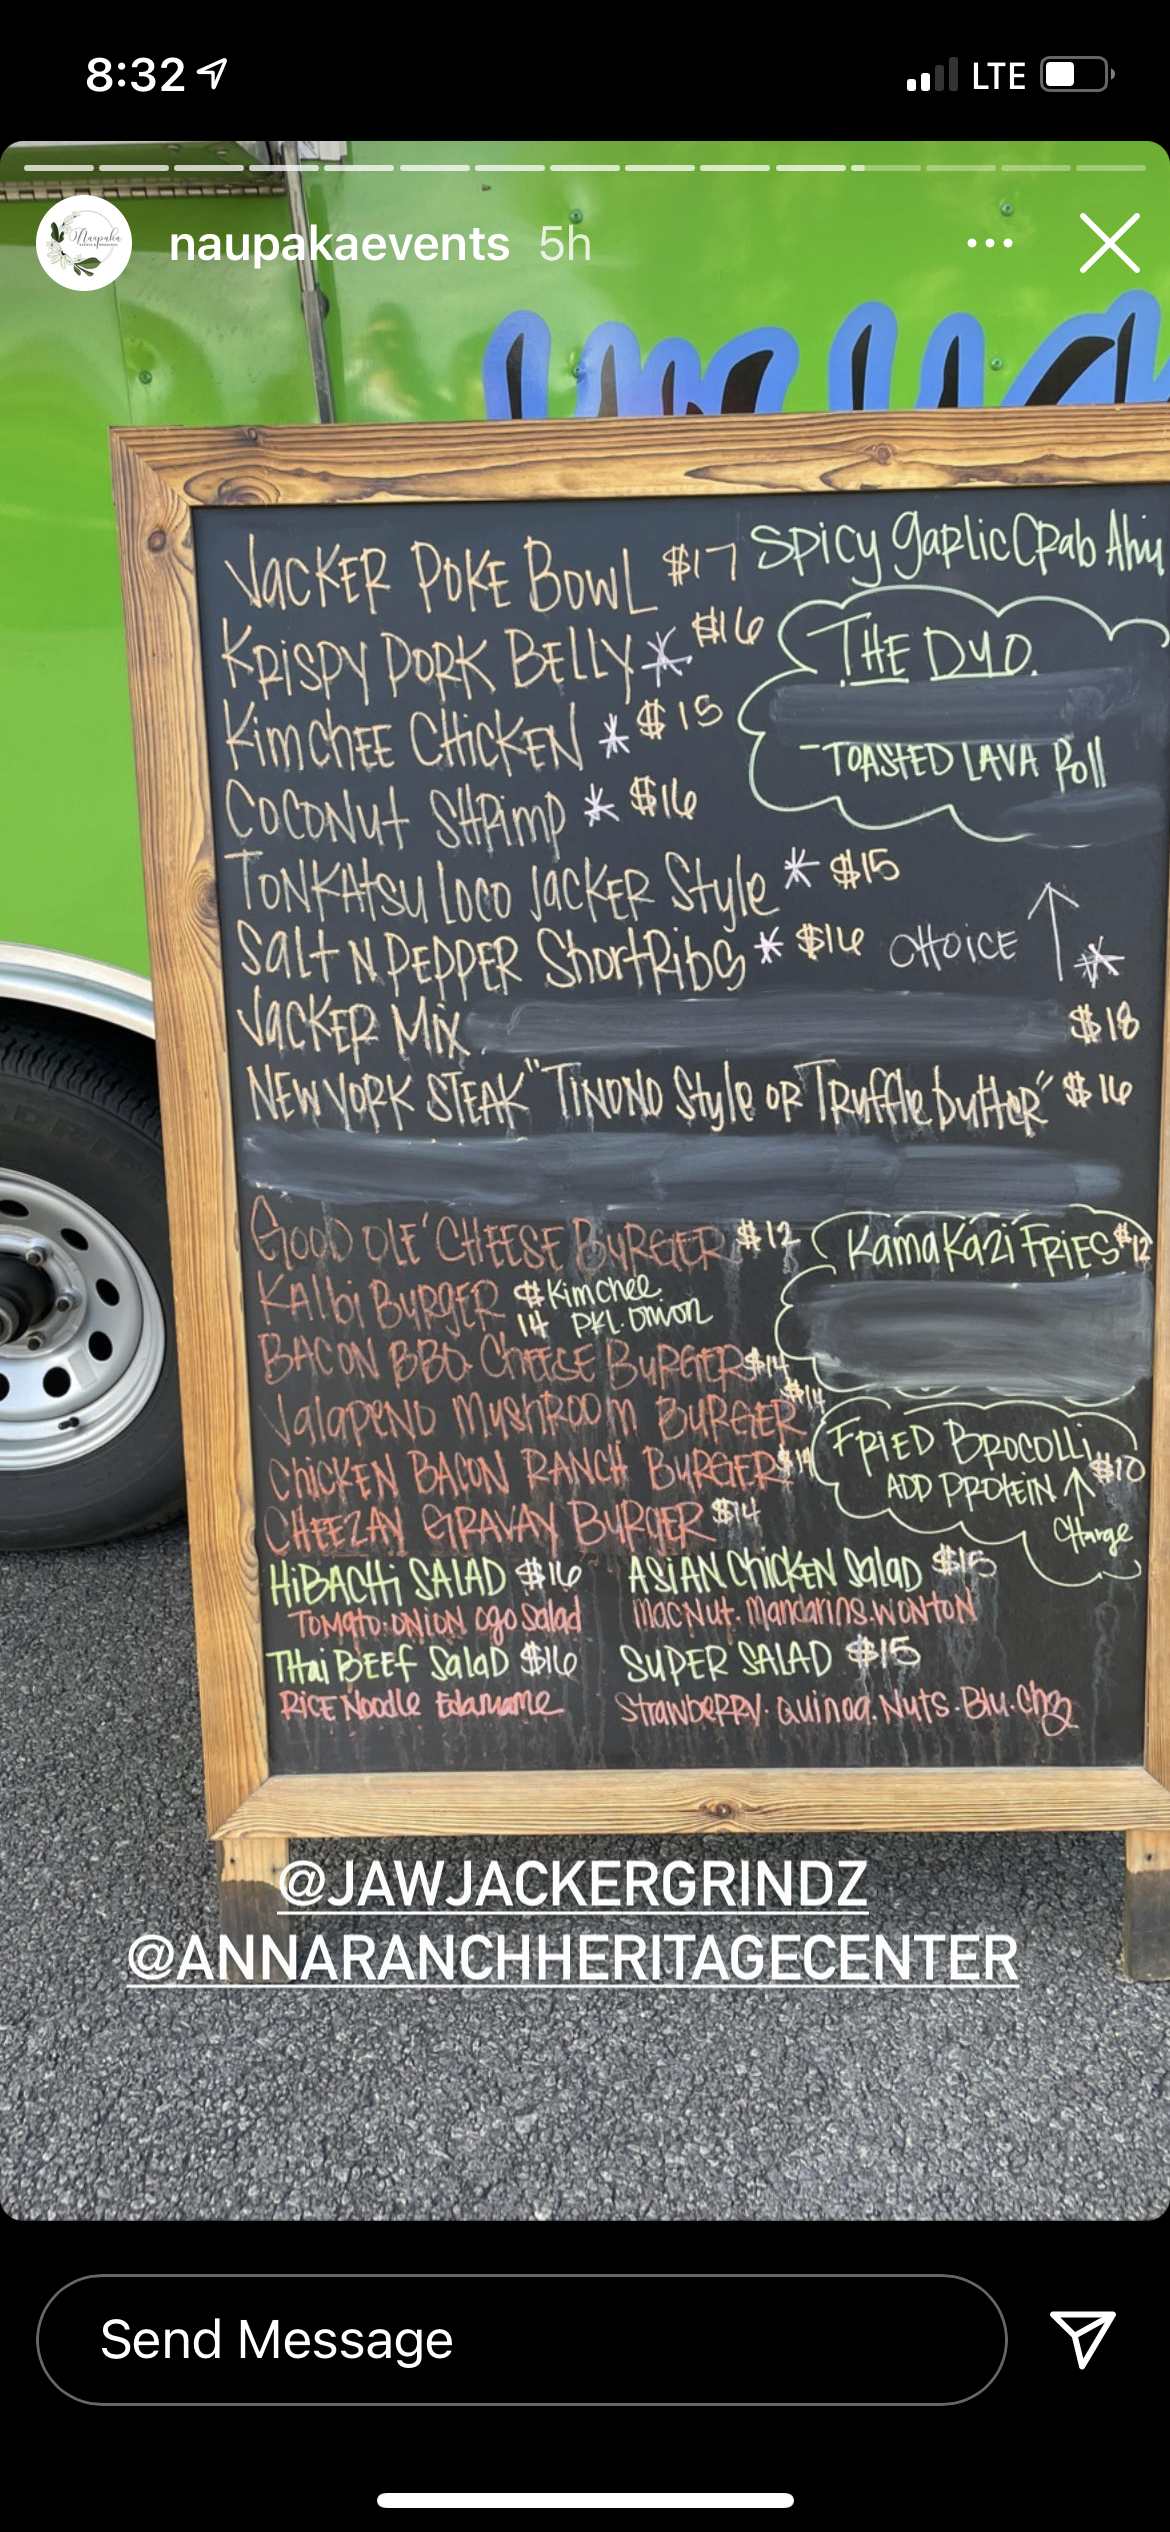 8:32
LTE
naupakaevents 5h
JACKER POKE BOWL $17 SPICY GARLIC CRAB AHI
KRISPY PORK BELLY * $16
THE DYO.
KIMCHEE CHICKEN * $15
-TOASTED LAVA Roll
COCONUT SHRIMP * $16
TONKATSU LOCO JACKER Style * $15
SALT N PEPPER ShortRibs * $16 CHOICE ↑ *
JACKER MIX $18
NEW YORK STEAK "TINONO Style OR Truffle butter" $16
GOOD OLE' CHEESE BURGER $12
KAMAKAZI FRIES $12
KALBI BURGER $14 Kimchee
PKL. ONION
BACON BBQ CHEESE BURGER $14
JALAPENO MUSHROOM BURGER $14
CHICKEN BACON RANCH BURGER $14
FRIED BROCOLLI $10
ADD PROTEIN ↑
CHarge
CHEEZAY GRAVAY BURGER $14
HIBACHI SALAD $16 ASIAN CHICKEN Salad $15
TOMATO. ONION OGO Salad MACNUT. MANDARINS. WONTON
THAI BEEF SALAD $16 SUPER SALAD $15
RICE Noodle Edamame Strawberry. Quinoa. Nuts. Blu. Chz
@JAWJACKERGRINDZ
@ANNARANCHHERITAGECENTER
Send Message